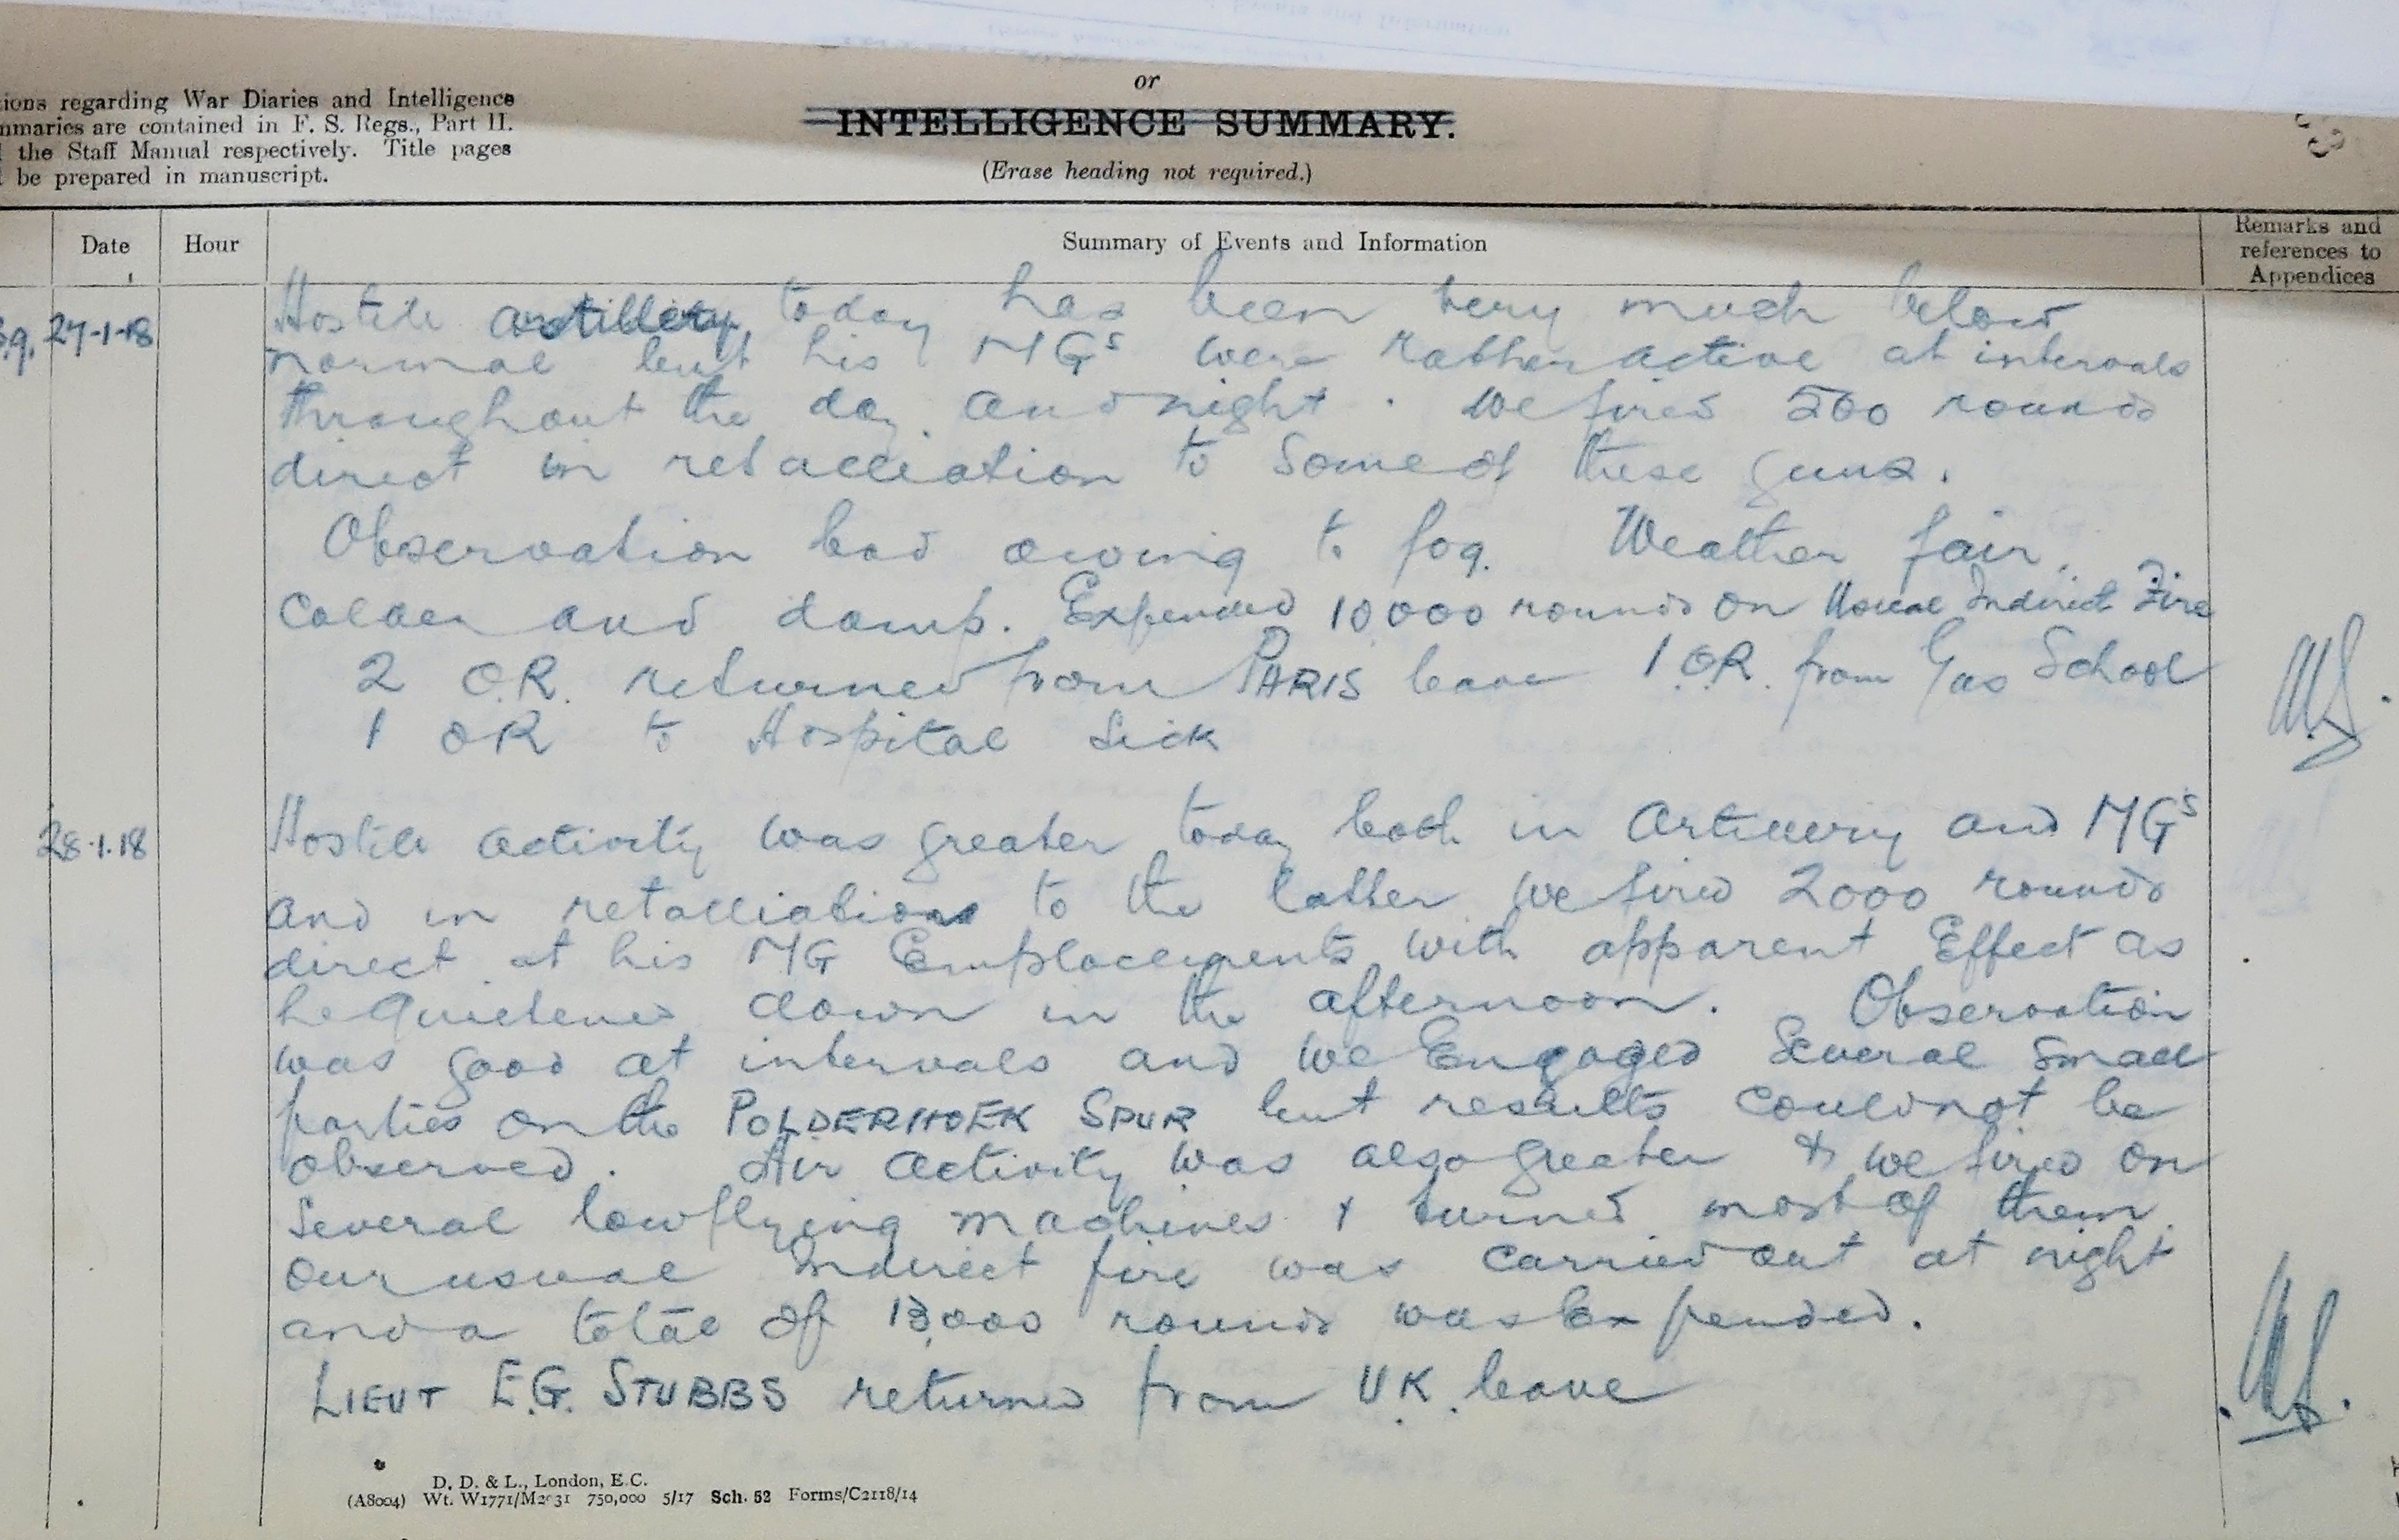 or
INTELLIGENCE SUMMARY.
(Erase heading not required.)
ions regarding War Diaries and Intelligence
mmaries are contained in F. S. Regs., Part II.
the Staff Manual respectively. Title pages
be prepared in manuscript.
Date Hour Summary of Events and Information Remarks and
references to
Appendices
27-1-18 Hostile artillery today has been very much below
normal but his MGs were rather active at intervals
throughout the day and night. We fired 500 rounds
direct in retalliation to some of these guns.
Observation bad owing to fog. Weather fair,
colder and damp. Expended 10000 rounds on Usual Indirect Fire
2 O.R. returned from PARIS leave 1 O.R. from Gas School
1 OR to Hospital Sick
28.1.18 Hostile activity was greater today both in Artillery and MGs
and in retalliation to the latter we fired 2000 rounds
direct at his MG Emplacements with apparent Effect as
he quietened down in the afternoon. Observation
was good at intervals and we Engaged Several Small
parties on the POLDERHOEK SPUR but results could not be
observed. Air Activity was also greater & we fired on
several low flying machines & turned most of them.
Our usual Indirect fire was carried out at night
and a total of 13,000 rounds was Expended.
LIEUT E.G. STUBBS returned from U.K. leave
D. D. & L., London, E.C.
(A8004) Wt. W1771/M2031 750,000 5/17 Sch. 52 Forms/C2118/14